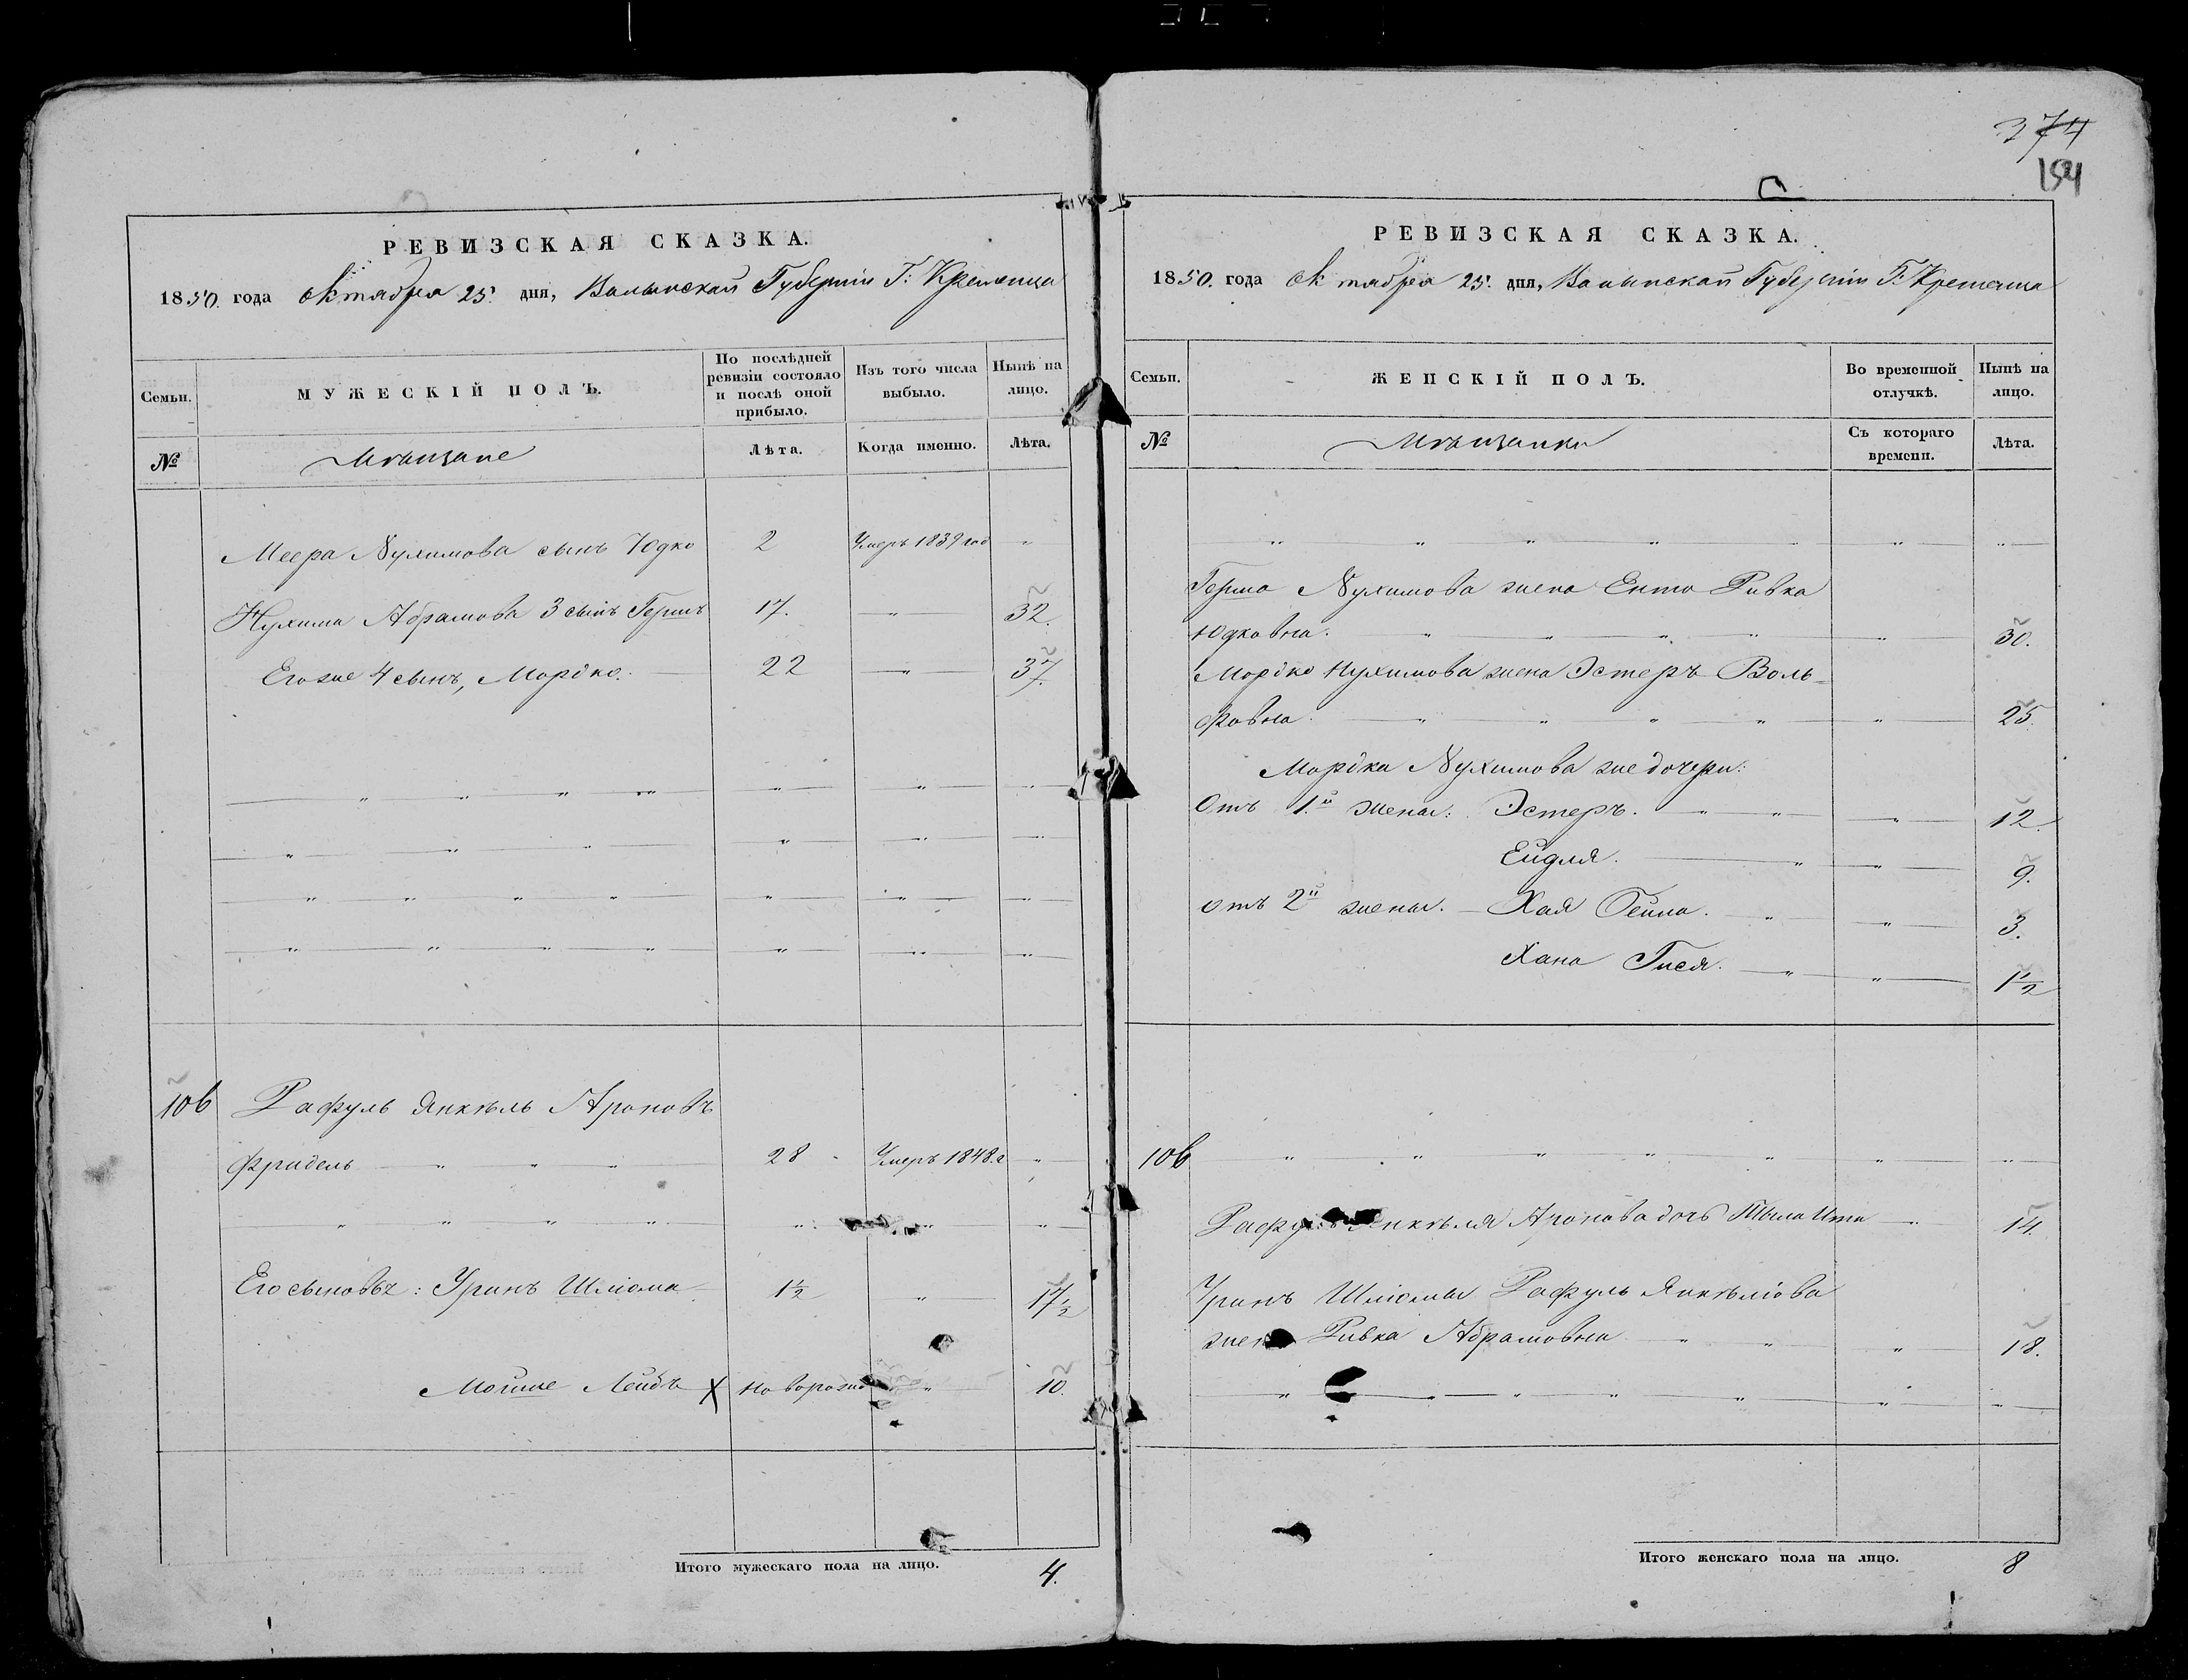 374
154
РЕВИЗСКАЯ СКАЗКА.
1850. года Октября 25. дня, Волынской Губерніи Г. Кременца
Семьи.
МУЖЕСКІЙ ПОЛЪ.
По послѣдней ревизіи состояло и послѣ оной прибыло.
Изъ того числа выбыло.
Нынѣ на лицо.
№
Мѣщане
Лѣта.
Когда именно.
Лѣта.
Меера Нухимова сынъ Юдко 2 Умеръ 1839 год "
Нухима Абрамова 3 сынъ Гершъ 17. " 32.
Его же 4 сынъ, Мордко. 22 " 37.
106 Рафуль Янкѣль Ароновъ
Фридель " " " 28 Умеръ 1848.г "
Его сыновья: Уринъ Шліома 1½ " 17½
Мойше Лейбъ X новорож " 10.
Итого мужескаго пола на лицо. 4.
РЕВИЗСКАЯ СКАЗКА.
1850. года Октября 25. дня, Волынской Губерніи Г. Кременца
Семьи.
ЖЕНСКІЙ ПОЛЪ.
Во временной отлучкѣ.
Нынѣ на лицо.
№
Мѣщанки
Съ котораго времени.
Лѣта.
Герша Нухимова жена Ента Ривка
Юдковна. " " " " " 30.
Мордко Нухимова жена Эстеръ Воль-
фовна. " " " " " 25.
Мордка Нухимова же дочери:
Отъ 1й жены: Эстеръ. " " " 12.
Ейдля. " " 9.
отъ 2й жены. Хая Бейла. " " 3.
Хана Гися. " " 1½
106 " " " " " " "
Рафуль Янкѣля Аронова дочь Тыла Ита " 14.
Уринъ Шліомы Рафуль Янкѣліова
жена Ривка Абрамовна " " " 18.
Итого женскаго пола на лицо. 8